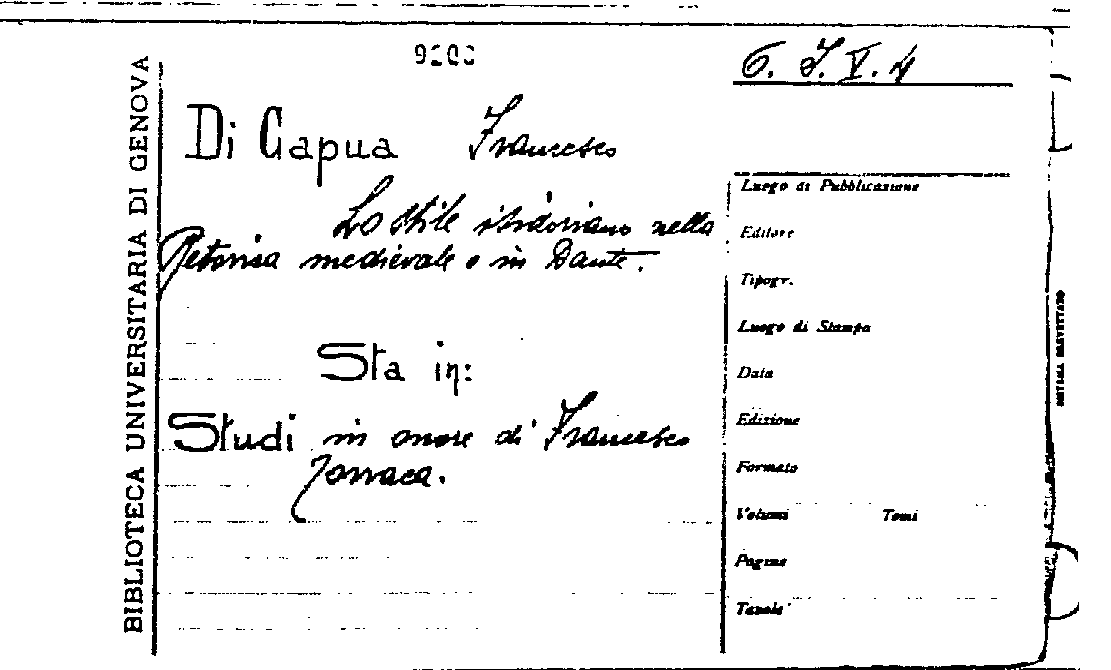 BIBLIOTECA UNIVERSITARIA DI GENOVA
6. J. V. 4
Di Capua Francesco
Lo stile isidoriano nella
Retorica medievale e in Dante.
Sta in:
Studi in onore di Francesco
Torraca.
Luogo di Pubblicazione
Editore
Tipogr.
Luogo di Stampa
Data
Edizione
Formato
Volumi Tomi
Pagine
Tavole
SISTEMA BREVETTATO